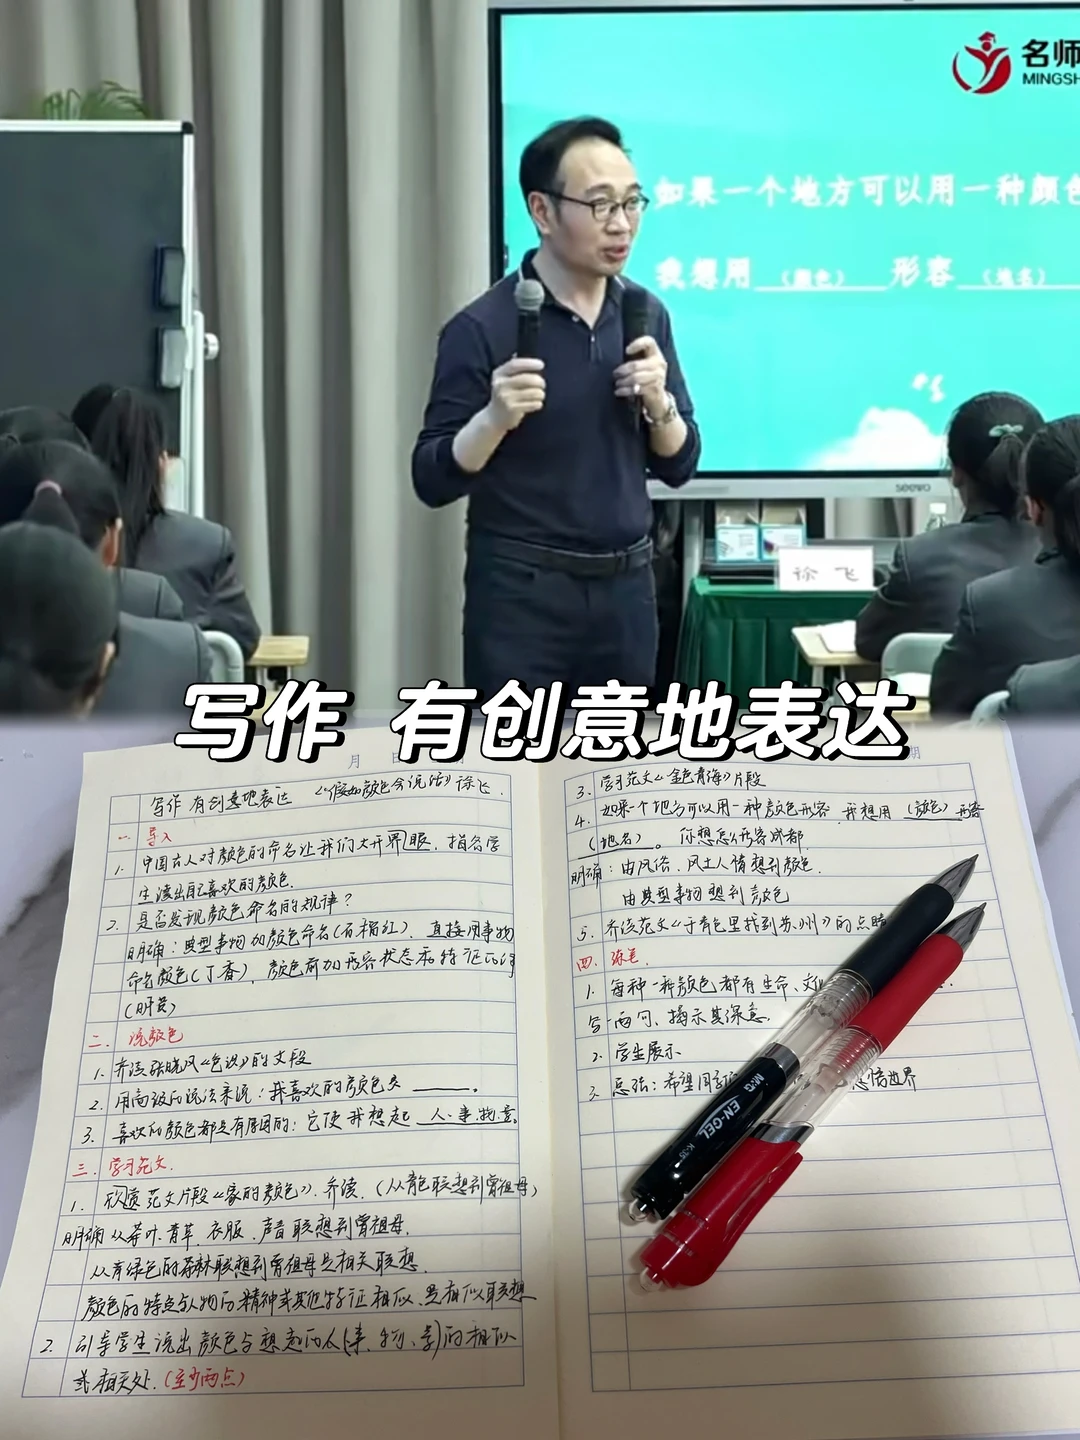 名师
MINGSH
如果一个地方可以用一种颜色
我想用 （颜色） 形容 （地名）
seewo
徐 飞
写作 有创意地表达
月 日
期
写作 有创意地表达 《假如颜色会说话》徐飞.
一. 导入
1. 中国古人对颜色的命名让我们大开界眼. 指名学
生读出自己喜欢的颜色.
2. 是否发现颜色命名的规律？
明确：典型事物加颜色命名(石榴红). 直接用事物
命名颜色(丁香). 颜色前加形容状态和特征的词
(明黄)
二. 说颜色
1. 齐读张晓风《色识》的文段
2. 用高级的说法来说：我喜欢的颜色是 ____.
3. 喜欢的颜色都是有原因的：它使我想起 人.事.物.意.
三. 学习范文.
1. 欣赏范文片段《家的颜色》. 齐读. (从青色联想到曾祖母)
明确 从茶叶.青草.衣服.声音联想到曾祖母.
从青绿色的森林联想到曾祖母是相关联想.
颜色的特点与人物的精神或其他特征相似.是相似联想
2. 引导学生说出颜色与想起的人(事、物、意)的相似
或相关处.(至少两点)
3. 学习范文《金色青海》片段
4. 如果一个地方可以用一种颜色形容 我想用 (颜色) 形容
(地名) 。你想怎么形容成都.
明确：由风俗.风土人情想到颜色.
由典型事物想到颜色
5. 齐读范文《于青色里找到苏州》的点睛
四. 练笔.
1. 每种一种颜色都有生命、文化
合一两句、揭示其深意.
2. 学生展示
3. 总结：希望同学们
悟边界
M&G
EN-GEL
K-35